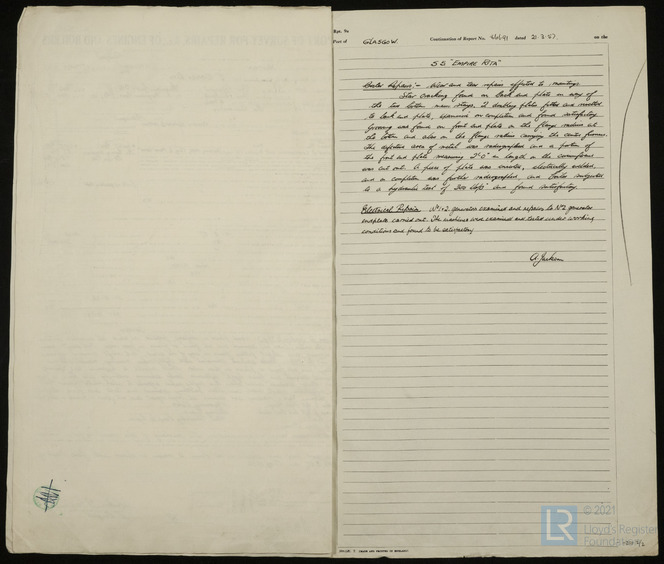 Rpt. 9a
Port of GLASGOW. Continuation of Report No. dated 2-3-57. on the
S.S "EMPIRE RITA"
Boiler Repairs:- Wear and tear repairs effected to mountings
Star cracking found in back end plate in way of
the two bottom main stays. 2 doubling plates fitted and welded
to back end plate, examined on completion and found satisfactory
Grooving was found on front end plate on the flange radius at
the bottom and also on the flange radius carrying the centre furnace.
The defective area of metal was radiographed and a portion of
the front end plate measuring 2'-0" in length in the
was cut out. A piece of plate was inserted, electrically welded,
and on completion was further radiographed, and boiler subjected
to a hydraulic test of and found satisfactory.
Electrical Repairs Nº 1+2 generators examined and repairs to Nº2 generator
endplate carried out. The machines were examined and tested under working
conditions and found to be satisfactory
A. Jackson
© 2021
LR
Lloyd's Register
Foundation